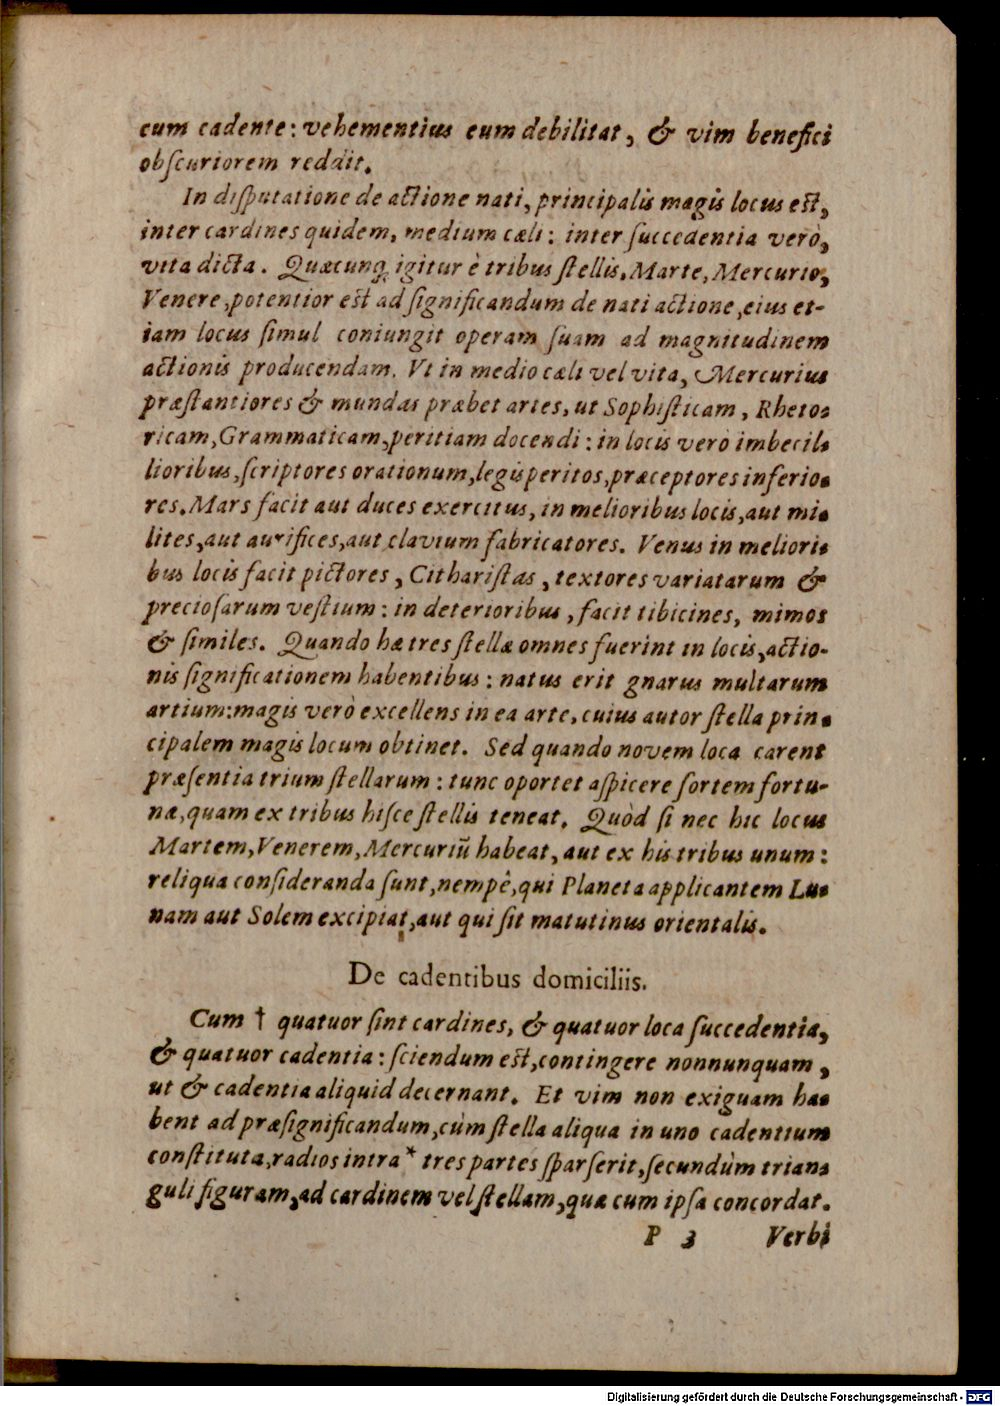 cum cadente: vehementius eum debilitat, & vim benefici
obſcuriorem reddit.
In diſputatione de actione nati, principalis magis locus est,
inter cardines quidem, medium cæli: inter ſuccedentia verò,
vita dicta. Quæcunq; igitur è tribus ſtellis, Marte, Mercurio,
Venere, potentior est ad ſignificandum de nati actione, eius et-
iam locus ſimul coniungit operam ſuam ad magnitudinem
actionis producendam. Vt in medio cæli vel vita, Mercurius
præſtantiores & mundas præbet artes, ut Sophiſticam, Rheto-
ricam, Grammaticam, peritiam docendi: in locis verò imbecil-
lioribus, ſcriptores orationum, legisperitos, præceptores inferio-
res. Mars facit aut duces exercitus, in melioribus locis, aut mi-
lites, aut aurifices, aut clavium fabricatores. Venus in meliori-
bus locis facit pictores, Cithariſtas, textores variatarum &
precioſarum veſtium: in deterioribus, facit tibicines, mimos
& ſimiles. Quando hæ tres ſtellæ omnes fuerint in locis, actio-
nis ſignificationem habentibus: natus erit gnarus multarum
artium: magis verò excellens in ea arte, cuius autor ſtella prin-
cipalem magis locum obtinet. Sed quando novem loca carent
præſentia trium ſtellarum: tunc oportet aſpicere ſortem fortu-
næ, quam ex tribus hiſce ſtellis teneat. Quòd ſi nec hic locus
Martem, Venerem, Mercuriũ habeat, aut ex his tribus unum:
reliqua conſideranda ſunt, nempê, qui Planeta applicantem Lu-
nam aut Solem excipiat, aut qui ſit matutinus orientalis.
De cadentibus domiciliis.
Cum † quatuor ſint cardines, & quatuor loca ſuccedentia,
& quatuor cadentia: ſciendum est, contingere nonnunquam,
ut & cadentia aliquid decernant. Et vim non exiguam ha-
bent ad præſignificandum, cùm ſtella aliqua in uno cadentium
conſtituta, radios intra * tres partes ſparſerit, ſecundùm trian-
guli figuram, ad cardinem vel ſtellam, quæ cum ipſa concordat.
P 3 Verbi
Digitalisierung gefördert durch die Deutsche Forschungsgemeinschaft - DFG